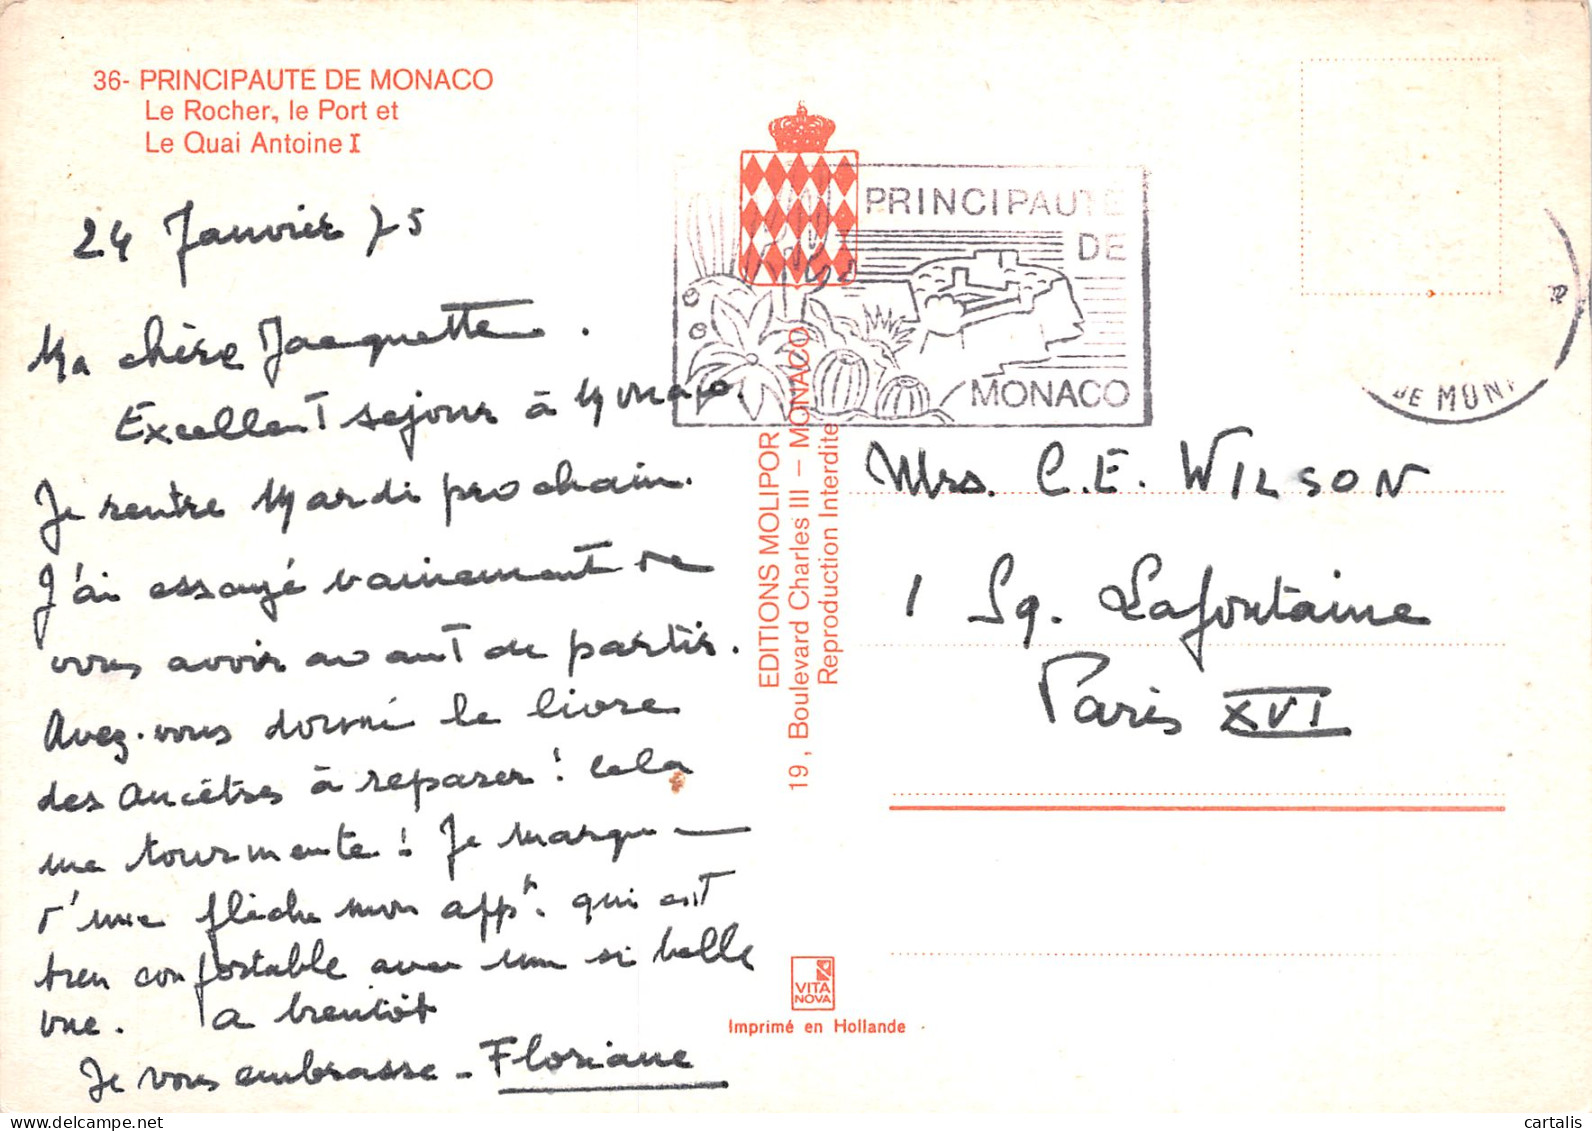 36- PRINCIPAUTE DE MONACO
Le Rocher, le Port et
Le Quai Antoine I
24 Janvier 75
Ma chère Jacquette.
Excellent sejour à Monaco.
Je rentre Mardi prochain.
J'ai essayé vainement de
vous avoir avant de partir.
Avez-vous donné le livre
des Ancêtres à reparer! Cela
me tourmente! Je marque
d'une flèche mon appt. qui est
tres confortable avec une si belle
vue. A bientôt
Je vous embrasse - Floriane
PRINCIPAUTE
DE
MONACO
EDITIONS MOLIPOR
19, Boulevard Charles III – MONACO
Reproduction Interdite
DE MON
Mrs. C.E. WILSON
1 Sq. Lafontaine
Paris XVI
VITA
NOVA
Imprimé en Hollande
cartalis